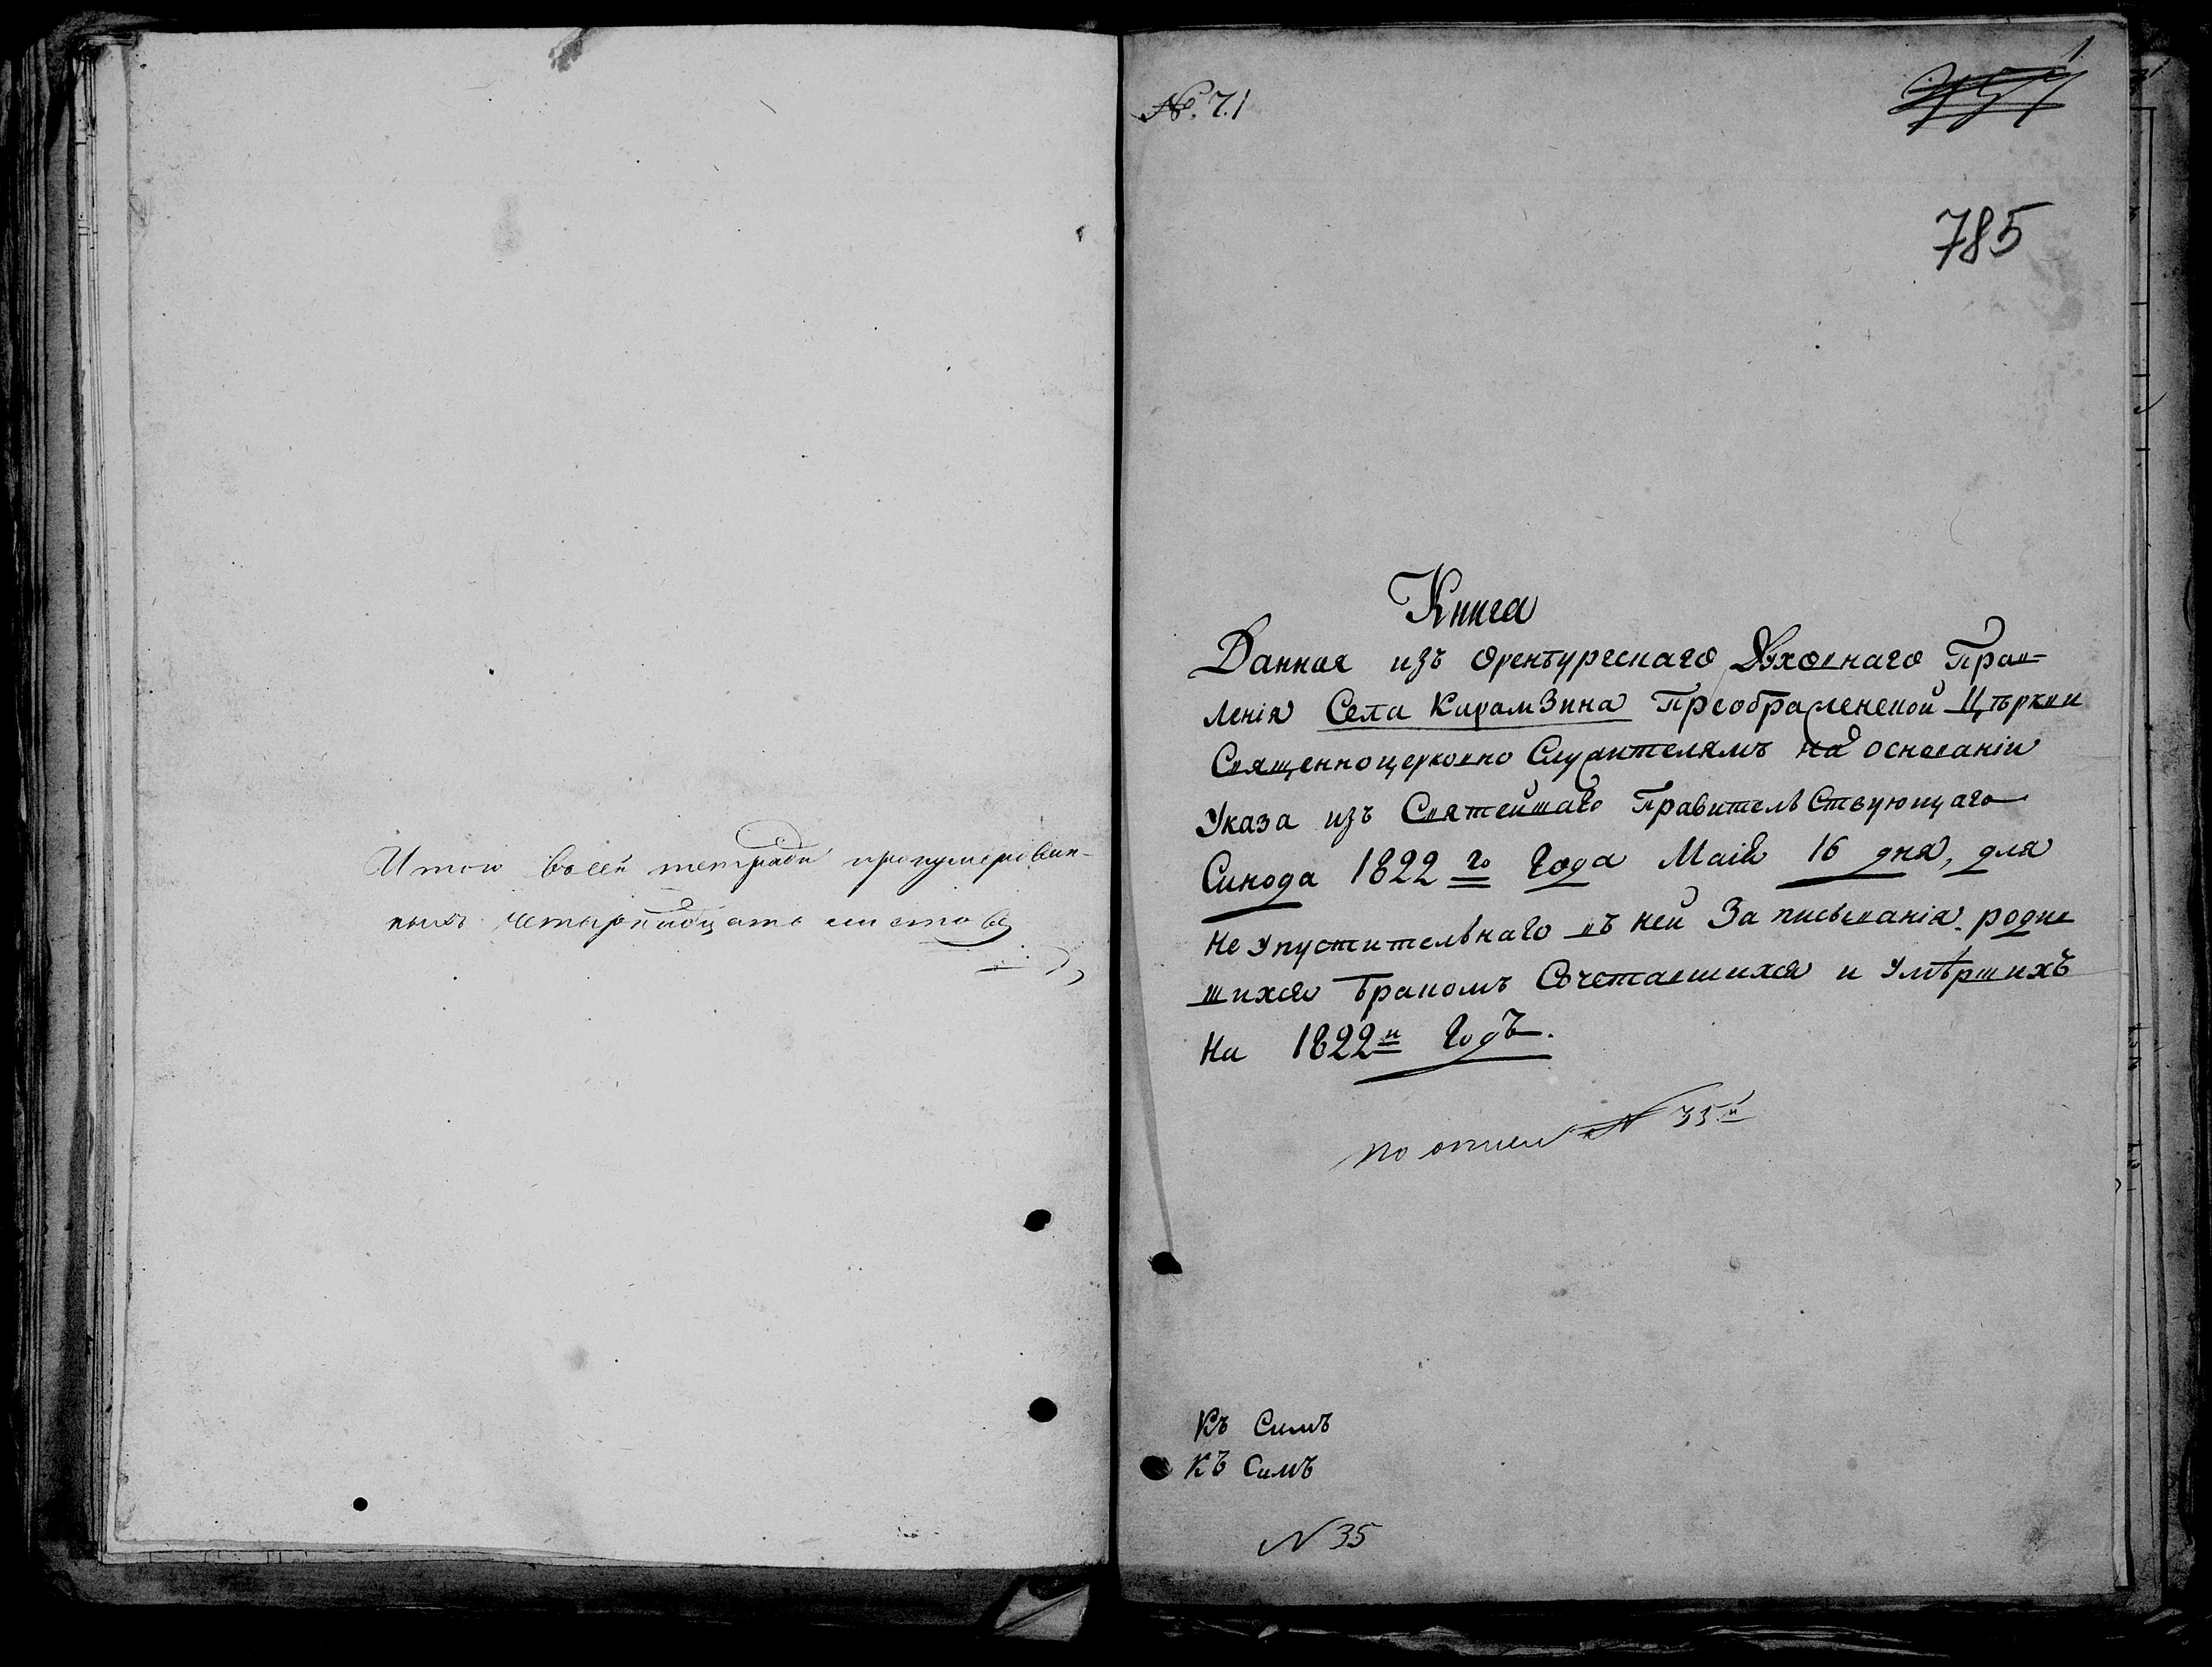 Итого во сей тетради пронумерован-
ныхъ четырнадцать листовъ
№. 71
1
785
Книга
Данная изъ Оренбургскаго Духовнаго Прав-
ленія Села Карамзина Преображенской Цѣркви
Священноцерковно Служителямъ на основаніи
Указа изъ Святейшаго Правительствующаго
Синода 1822 го Года Маія 16 дня, для
Не упустительнаго въ ней Записыванія родив
шихся бракомъ Сочетавшихся и Умѣршихъ
На 1822й Годъ.
по описи № 35й
Къ Симъ
Къ Симъ
N 35